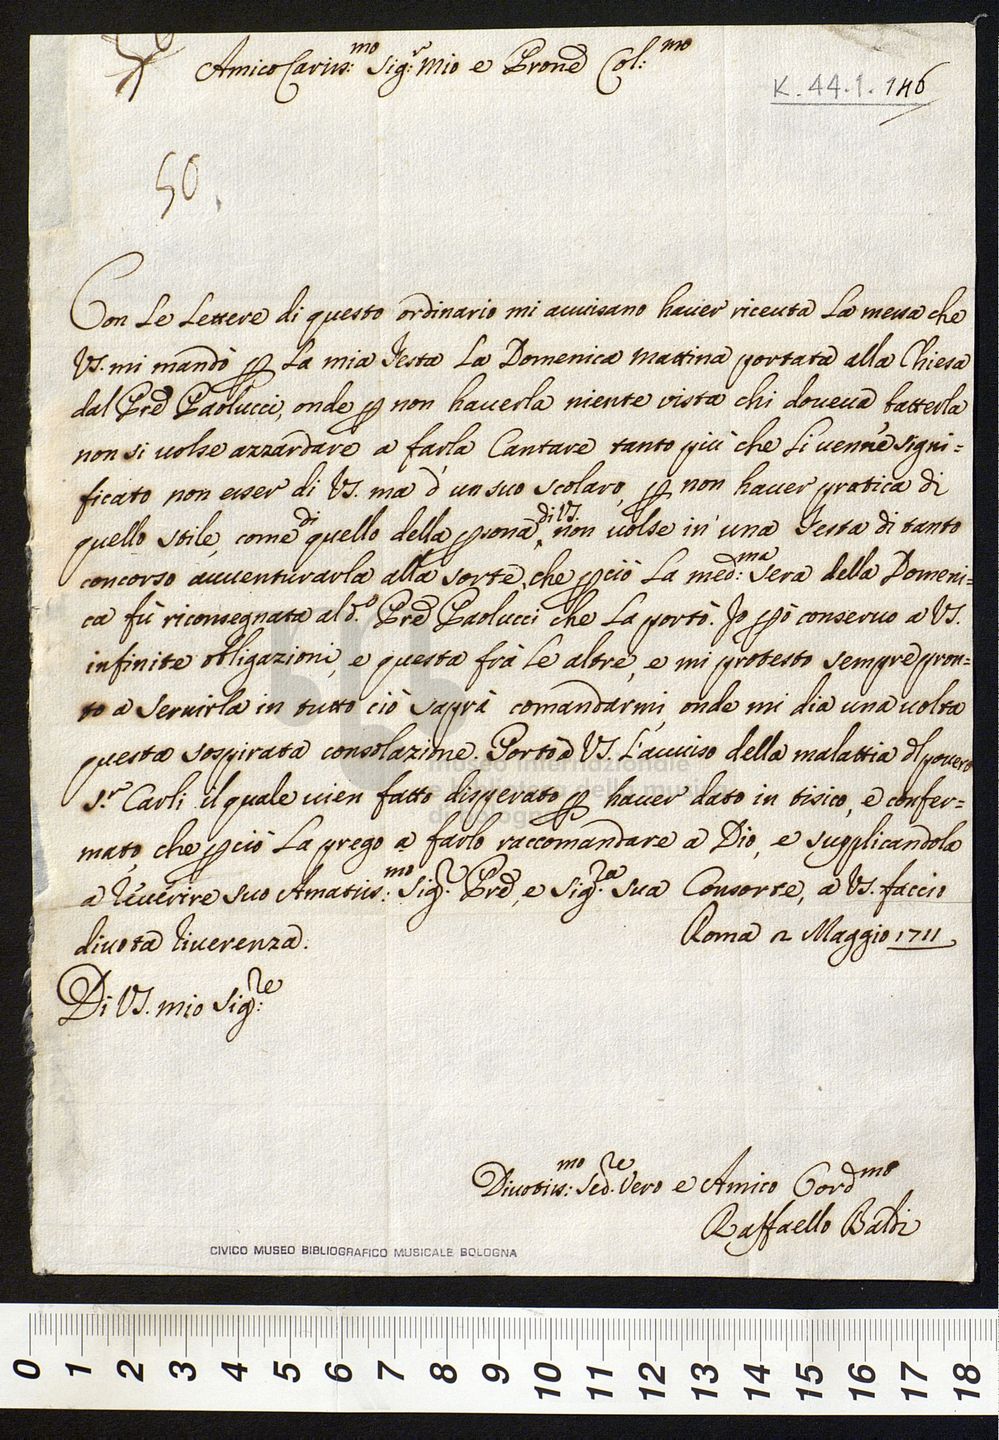 Amico Cariss:mo Sig:r Mio e Prone Col:mo
K. 44. 1. 146
50
Con le lettere di questo ordinario mi auuisano hauer riceuta la messa che
VS. mi mandò p la mia Festa la Domenica mattina portata alla Chiesa
dal Pre Paolucci, onde p non hauerla niente vista chi doueua batterla
non si uolse azzardare a farla Cantare tanto più che li uenne signi=
ficato non esser di VS. ma d'un suo scolaro, p non hauer pratica di
quello stile, come di quello della psona di VS. non uolse in una Festa di tanto
concorso auuenturarla alla sorte, che pciò la med:ma sera della Domeni=
ca fù riconsegnata al d.o Pre Paolucci che la portò. Io pò conseruo a VS.
infinite obligazioni, e questa frà le altre, e mi protesto sempre pron=
to a seruirla in tutto ciò saprà comandarmi, onde mi dia una uolta
questa sospirata consolazione. Porto a VS. l'auuiso della malattia dl pouero
S.r Carli il quale uien fatto disperato p hauer dato in tisico, e confer=
mato, che pciò la prego a farlo raccomandare a Dio, e supplicandola
a reuerire suo Amatiss:mo Sig:r Pre, e Sig:ra sua Consorte, a VS. faccio
diuota riuerenza.
Roma 2 Maggio 1711
Di VS. mio Sig:re
Diuotiss:mo Ser.re Vero e Amico Cord.mo
Raffaello Baldi
CIVICO MUSEO BIBLIOGRAFICO MUSICALE BOLOGNA
museo internazionale
e biblioteca della musica
di bologna
0 1 2 3 4 5 6 7 8 9 10 11 12 13 14 15 16 17 18